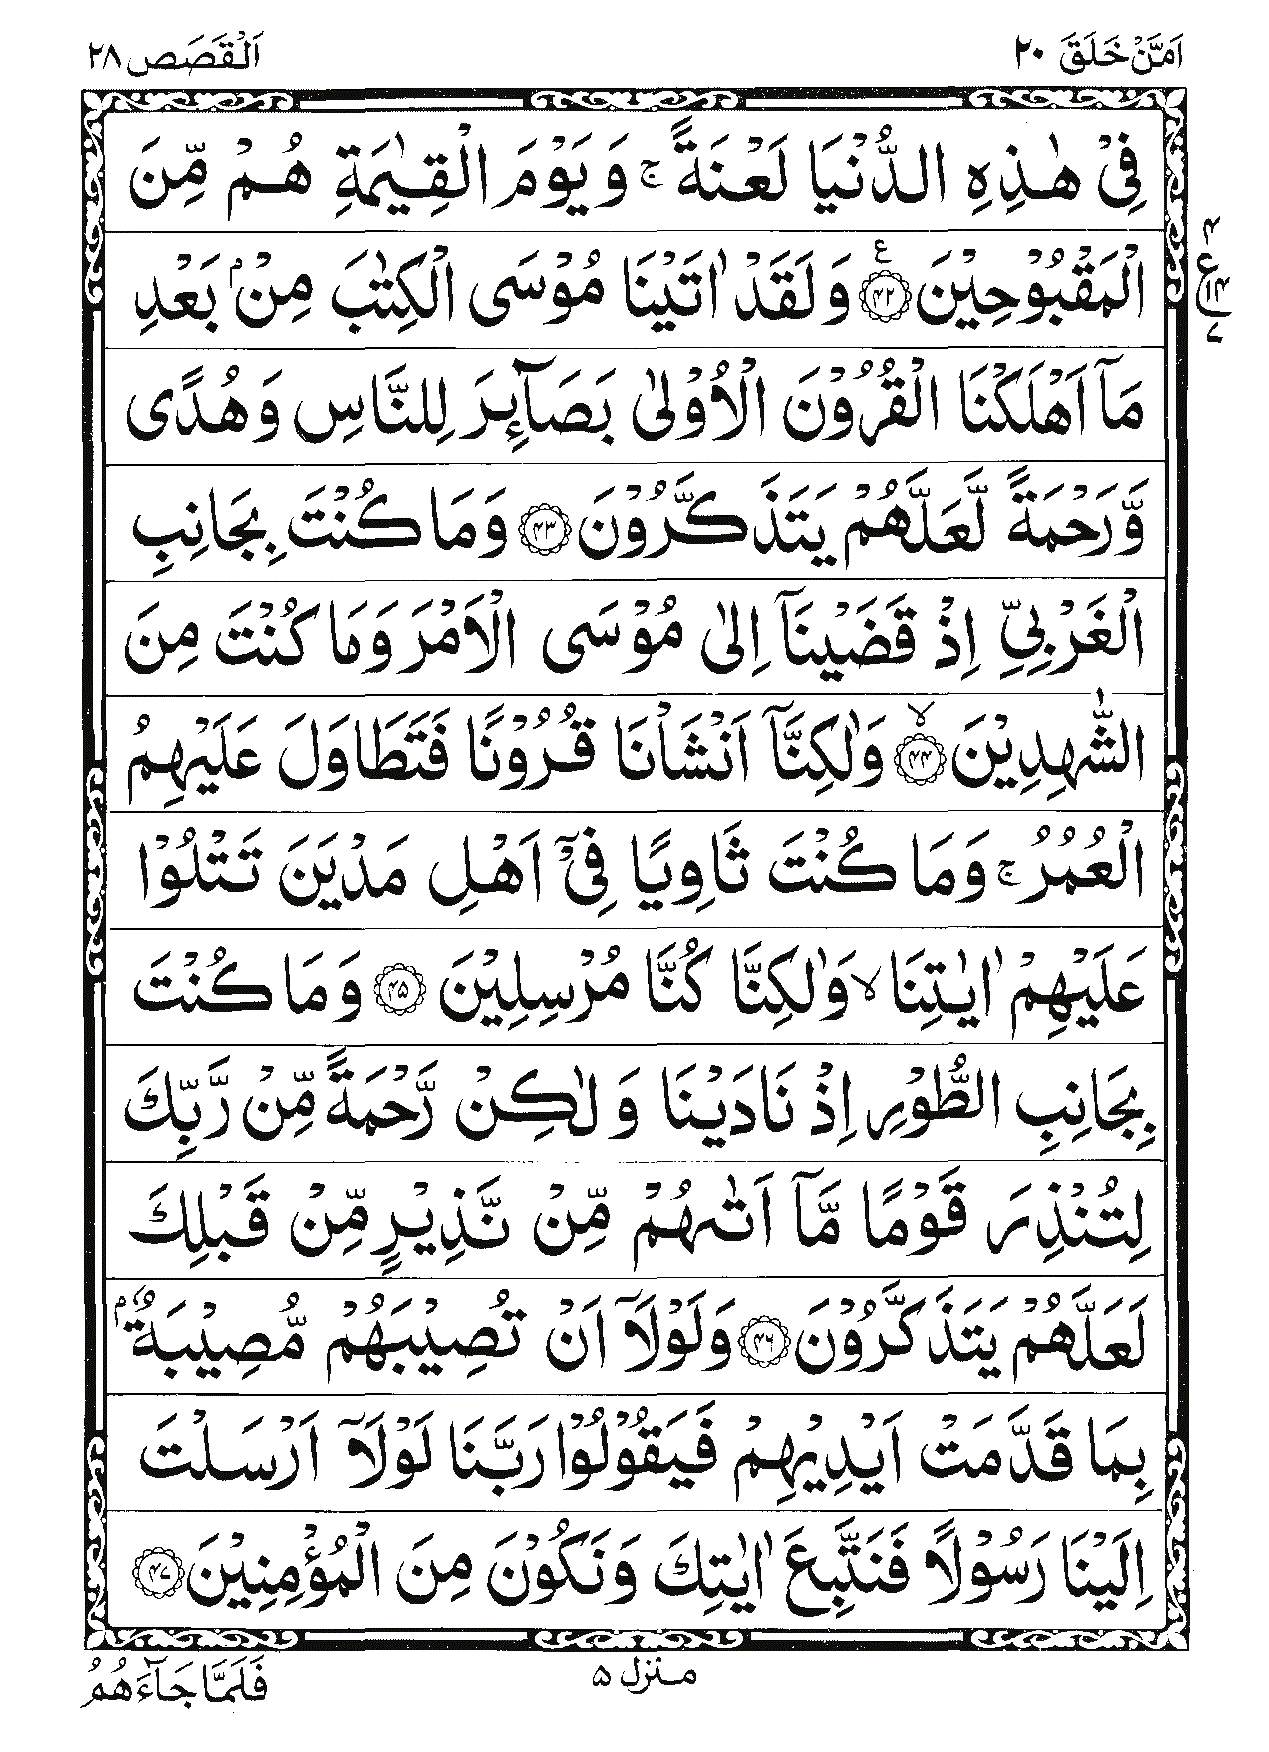 اَمَّنْ خَلَقَ ٢٠
اَلْقَصَص ٢٨
فِیْ هٰذِهِ الدُّنْیَا لَعْنَةً ۚ وَ یَوْمَ الْقِیٰمَةِ هُمْ مِّنَ
الْمَقْبُوْحِیْنَ ﴿۴۲﴾ ع وَ لَقَدْ اٰتَیْنَا مُوْسَی الْكِتٰبَ مِنْۢ بَعْدِ
ع ۴ ۱۴ ۷
مَاۤ اَهْلَكْنَا الْقُرُوْنَ الْاُوْلٰی بَصَآىِٕرَ لِلنَّاسِ وَ هُدًی
وَّ رَحْمَةً لَّعَلَّهُمْ یَتَذَكَّرُوْنَ ﴿۴۳﴾ وَ مَا كُنْتَ بِجَانِبِ
الْغَرْبِیِّ اِذْ قَضَیْنَاۤ اِلٰی مُوْسَی الْاَمْرَ وَ مَا كُنْتَ مِنَ
الشّٰهِدِیْنَ ﴿۴۴﴾ ۙ وَ لٰكِنَّاۤ اَنْشَاْنَا قُرُوْنًا فَتَطَاوَلَ عَلَیْهِمُ
الْعُمُرُ ۚ وَ مَا كُنْتَ ثَاوِیًا فِیْۤ اَهْلِ مَدْیَنَ تَتْلُوْا
عَلَیْهِمْ اٰیٰتِنَا ۙ وَ لٰكِنَّا كُنَّا مُرْسِلِیْنَ ﴿۴۵﴾ وَ مَا كُنْتَ
بِجَانِبِ الطُّوْرِ اِذْ نَادَیْنَا وَ لٰكِنْ رَّحْمَةً مِّنْ رَّبِّكَ
لِتُنْذِرَ قَوْمًا مَّاۤ اَتٰىهُمْ مِّنْ نَّذِیْرٍ مِّنْ قَبْلِكَ
لَعَلَّهُمْ یَتَذَكَّرُوْنَ ﴿۴۶﴾ وَ لَوْلَاۤ اَنْ تُصِیْبَهُمْ مُّصِیْبَةٌۢ
بِمَا قَدَّمَتْ اَیْدِیْهِمْ فَیَقُوْلُوْا رَبَّنَا لَوْلَاۤ اَرْسَلْتَ
اِلَیْنَا رَسُوْلًا فَنَتَّبِعَ اٰیٰتِكَ وَ نَكُوْنَ مِنَ الْمُؤْمِنِیْنَ ﴿۴۷﴾
منزل ۵
فَلَمَّا جَآءَهُمُ